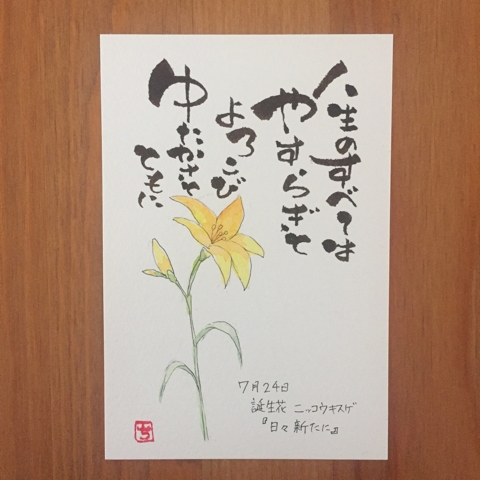 人生のすべては
やすらぎと
よろこび
ゆたかさと
ともに
7月24日
誕生花 ニッコウキスゲ
『日々新たに』